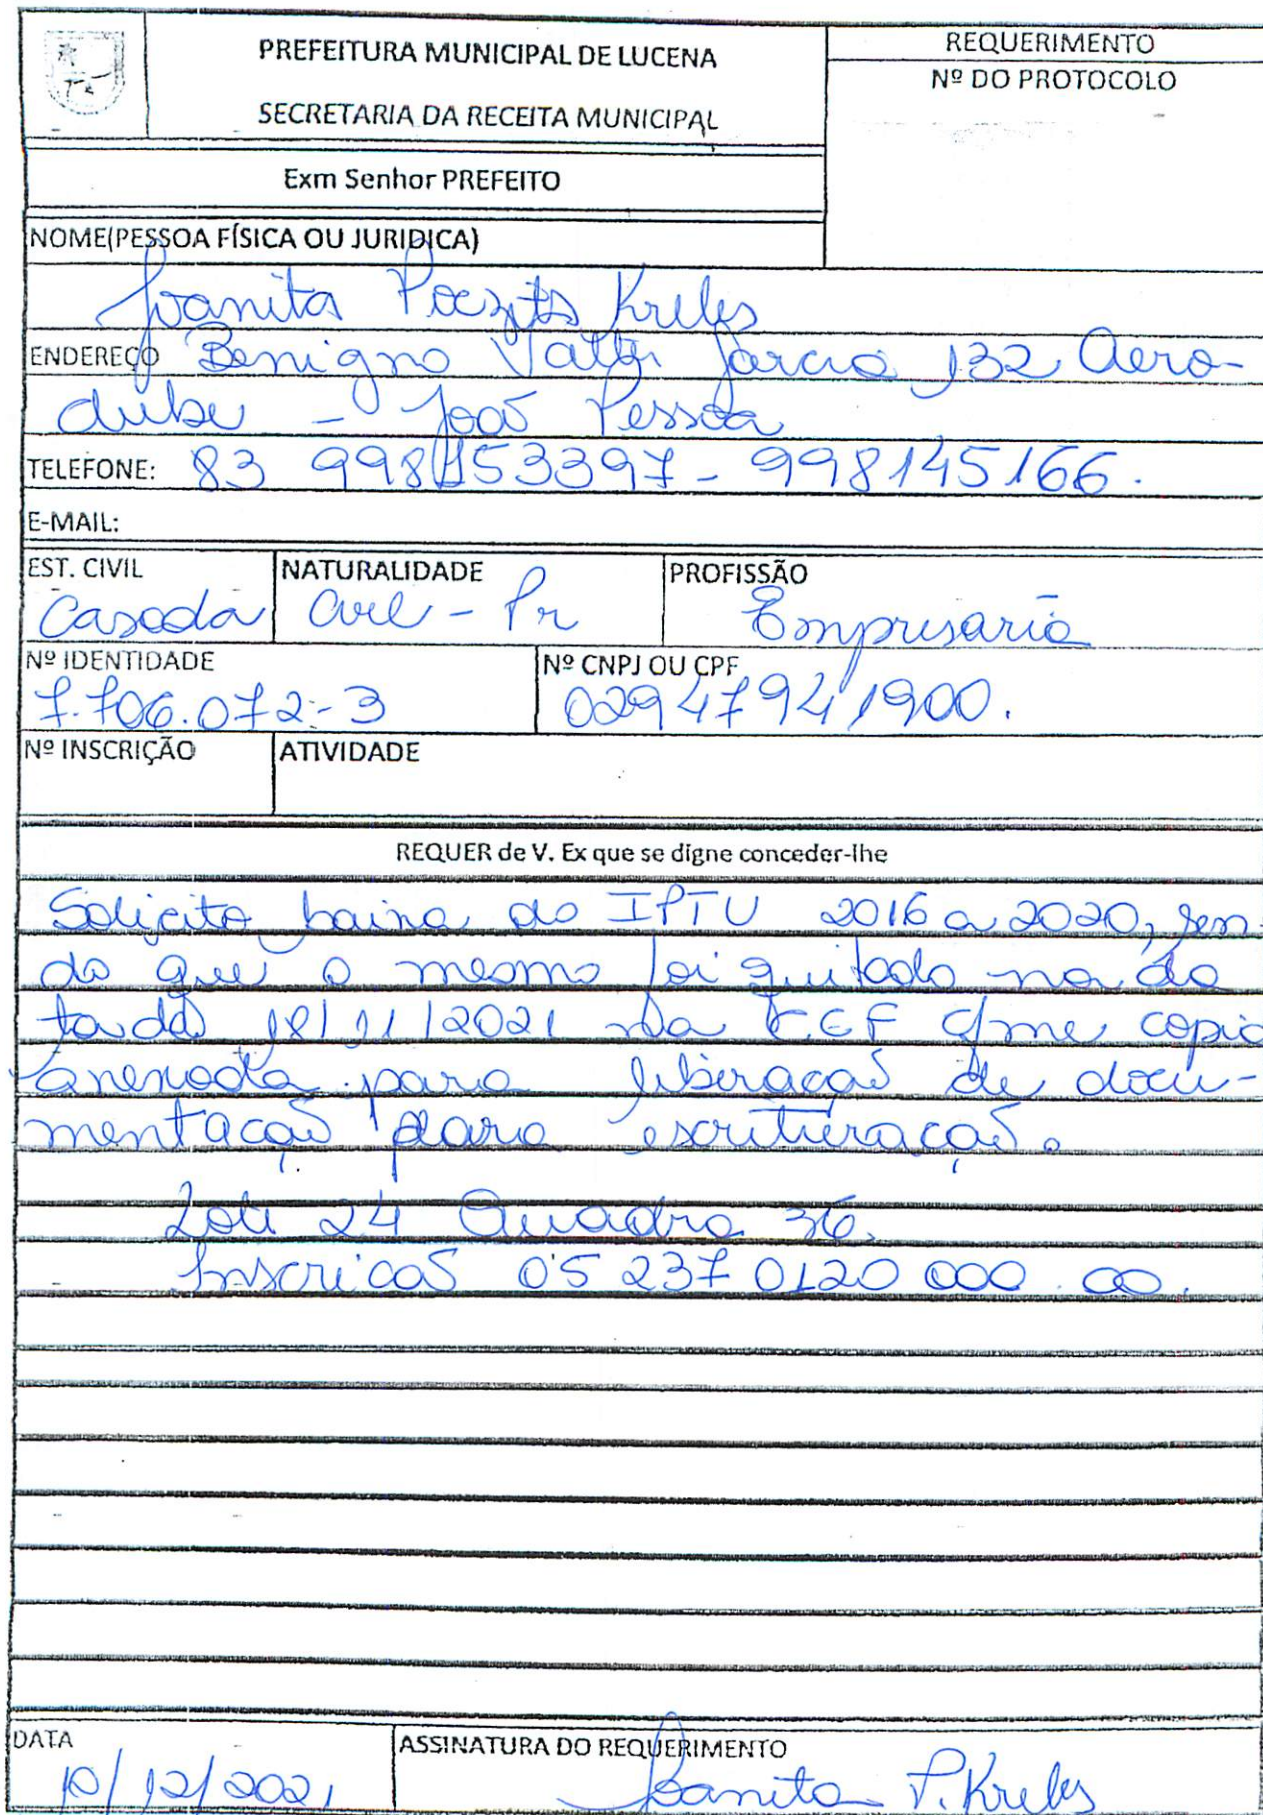 PREFEITURA MUNICIPAL DE LUCENA
SECRETARIA DA RECEITA MUNICIPAL
REQUERIMENTO
Nº DO PROTOCOLO
Exm Senhor PREFEITO
NOME(PESSOA FÍSICA OU JURIDICA)
Ivanita Kreles
ENDEREÇO Benigno Valter Garcia 132 Aero-
clube - João Pessoa
TELEFONE: 83 998153397 - 998145166.
E-MAIL:
EST. CIVIL
NATURALIDADE
PROFISSÃO
Casada
- Pr
Empresaria
Nº IDENTIDADE
Nº CNPJ OU CPF
7.706.072-3
02947941900.
Nº INSCRIÇÃO
ATIVIDADE
REQUER de V. Ex que se digne conceder-lhe
Solicito baixa do IPTU 2016 a 2020, sen-
do que o mesmo foi quitado na da
ta da 18/11/2021 na C.E.F c/me copia
anexada para liberação de docu-
mentação para escrituração.
Lote 24 Quadra 36.
Inscricaõ 05 237 0120 000 . 00.
DATA
ASSINATURA DO REQUERIMENTO
10/12/2021
Ivanita P. Kreles